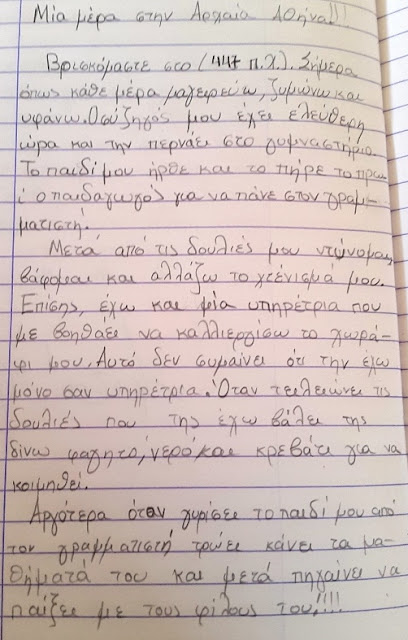 Μία μέρα στην Αρχαία Αθήνα!!!
Βρισκόμαστε στο (447 π.χ.). Σήμερα
όπως κάθε μέρα μαγειρεύω, ζυμώνω και
υφάνω. Ο σύζηγός μου έχει ελεύθερη
ώρα και την περνάει στο γυμναστήριο.
Το παιδί μου ήρθε και το πήρε το πρω-
ί ο παιδαγωγός για να πάνε στον γραμ-
ματιστή.
Μετά από τις δουλιές μου ντύνομαι,
βάφομαι και αλλάζω το χτένισμά μου.
Επίσης, έχω και μία υπηρέτρια που
με βοηθάει να καλλιεργίσω το χωρά-
φι μου. Αυτό δεν συμαίνει ότι την έχω
μόνο σαν υπηρέτρια. Όταν τειλειώνει τις
δουλιές που της έχω βάλει της
δίνω φαγητό, νερό και κρεβάτι για να
κοιμηθεί.
Αργότερα όταν γυρίσει το παιδί μου από
τον γραμματιστή τρώει κάνει τα μα-
θήματά του και μετά πηγαίνει να
παίξει με τους φίλους του!!!!